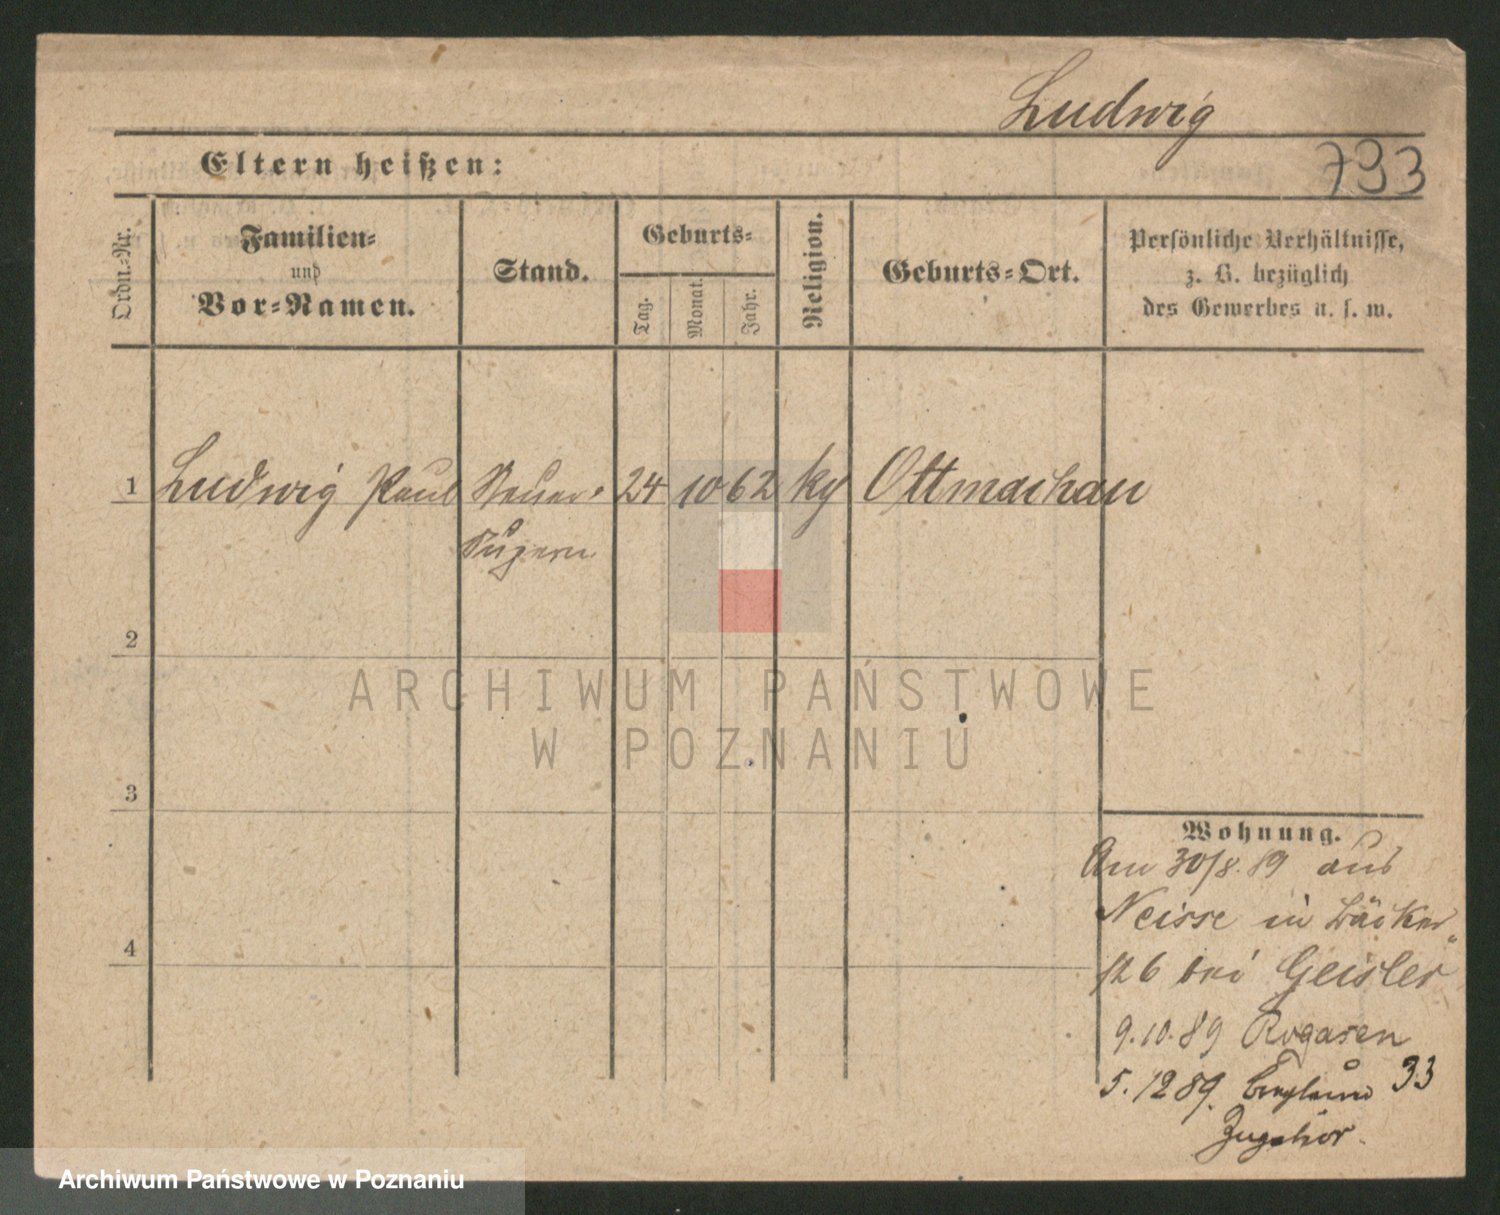 Ludwig
733
Eltern heißen:
Ordn.-Nr.
Familien-
und
Vor-Namen.
Stand.
Geburts-
Tag.
Monat.
Jahr.
Religion.
Geburts-Ort.
Persönliche Verhältnisse,
z. B. bezüglich
des Gewerbes u. s. w.
1 Ludwig Paul Steuer- 24 10 62 kg Ottmachau
2
3
4
Wohnung.
Am 30/8.89 aus
Neisse in Bäcker-
26 bei Geisler
9.10.89 Rogasen
5.12 89. 33
ARCHIWUM PAŃSTWOWE
W POZNANIU
Archiwum Państwowe w Poznaniu